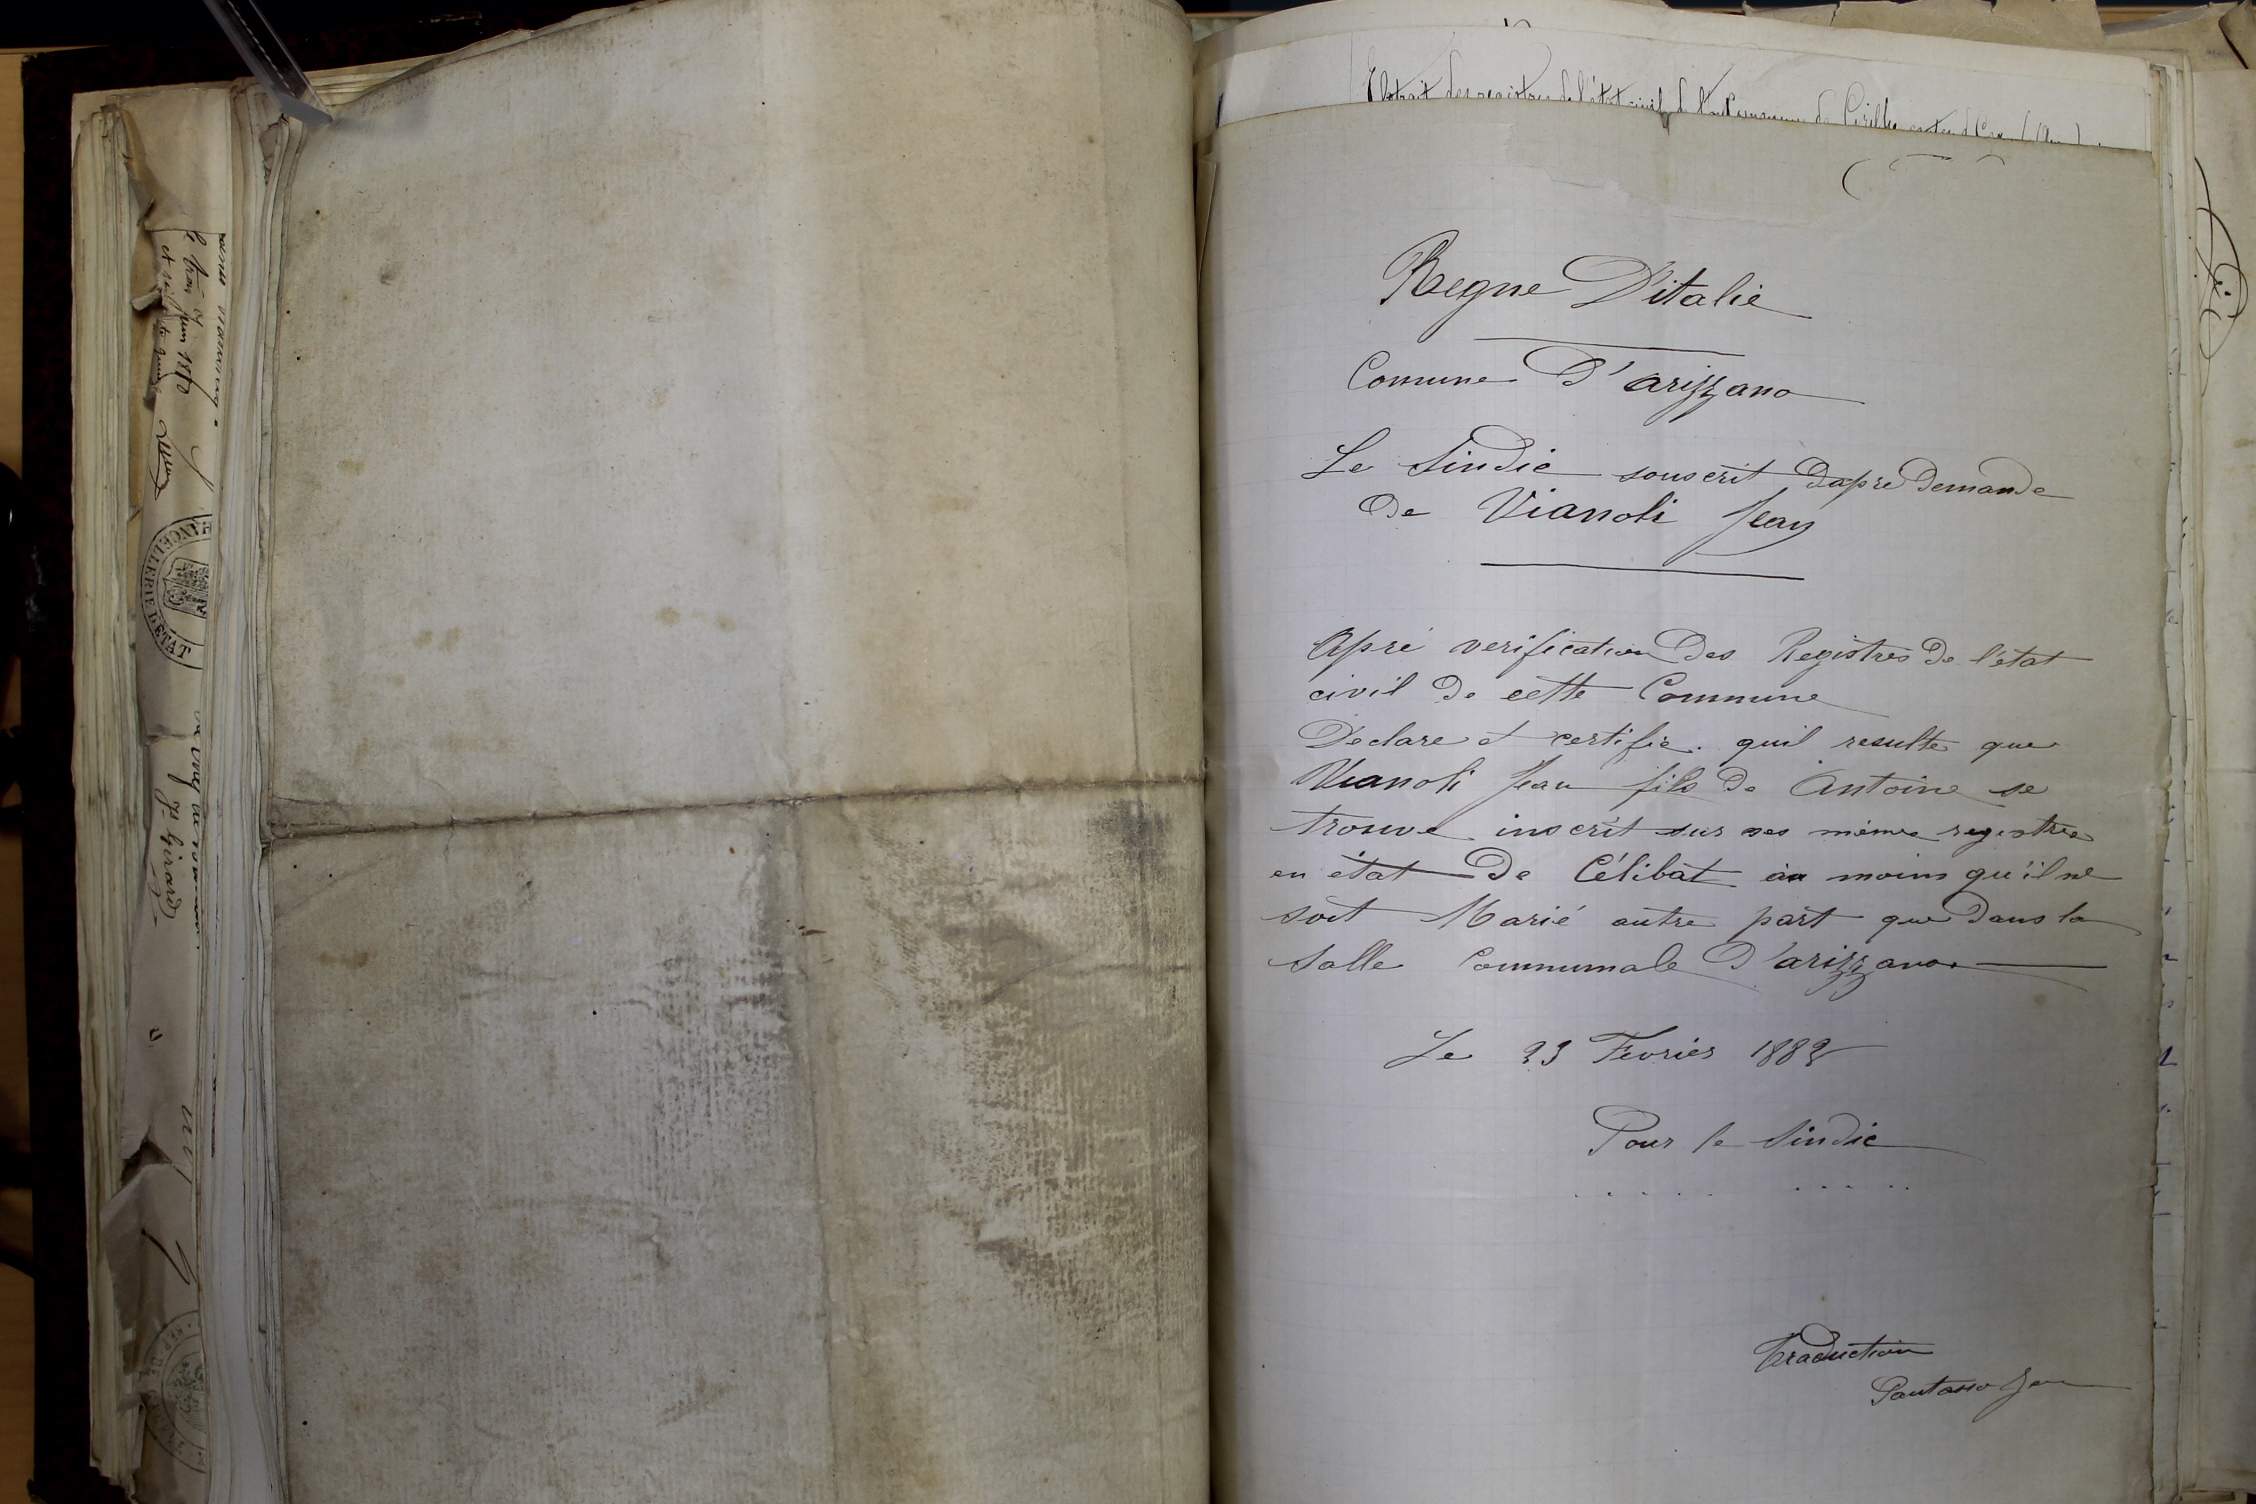 le trois juin 1880
CHANCELLERIE D'ÉTAT
Jn Girard
Extrait des registres de l'état civil de la Commune de
Regne D'italie
Comune D'arizzano
Le Sindic souscrit dapre Demande
De Vianoli Jean
Apré verification Des Registres De l'état
civil De cette Commune
Déclare et certifie. quil resulte que
Vianoli Jean fils De Antoine se
trouve inscrit sur ses même registres
en état De Célibat au moins qu'il ne
soit Marié autre part que Dans la
Salle Communale D'arizzano.
Le 23 Fevrier 1882
Pour le Sindic
..... .....
Traduction
Pautasso Jean